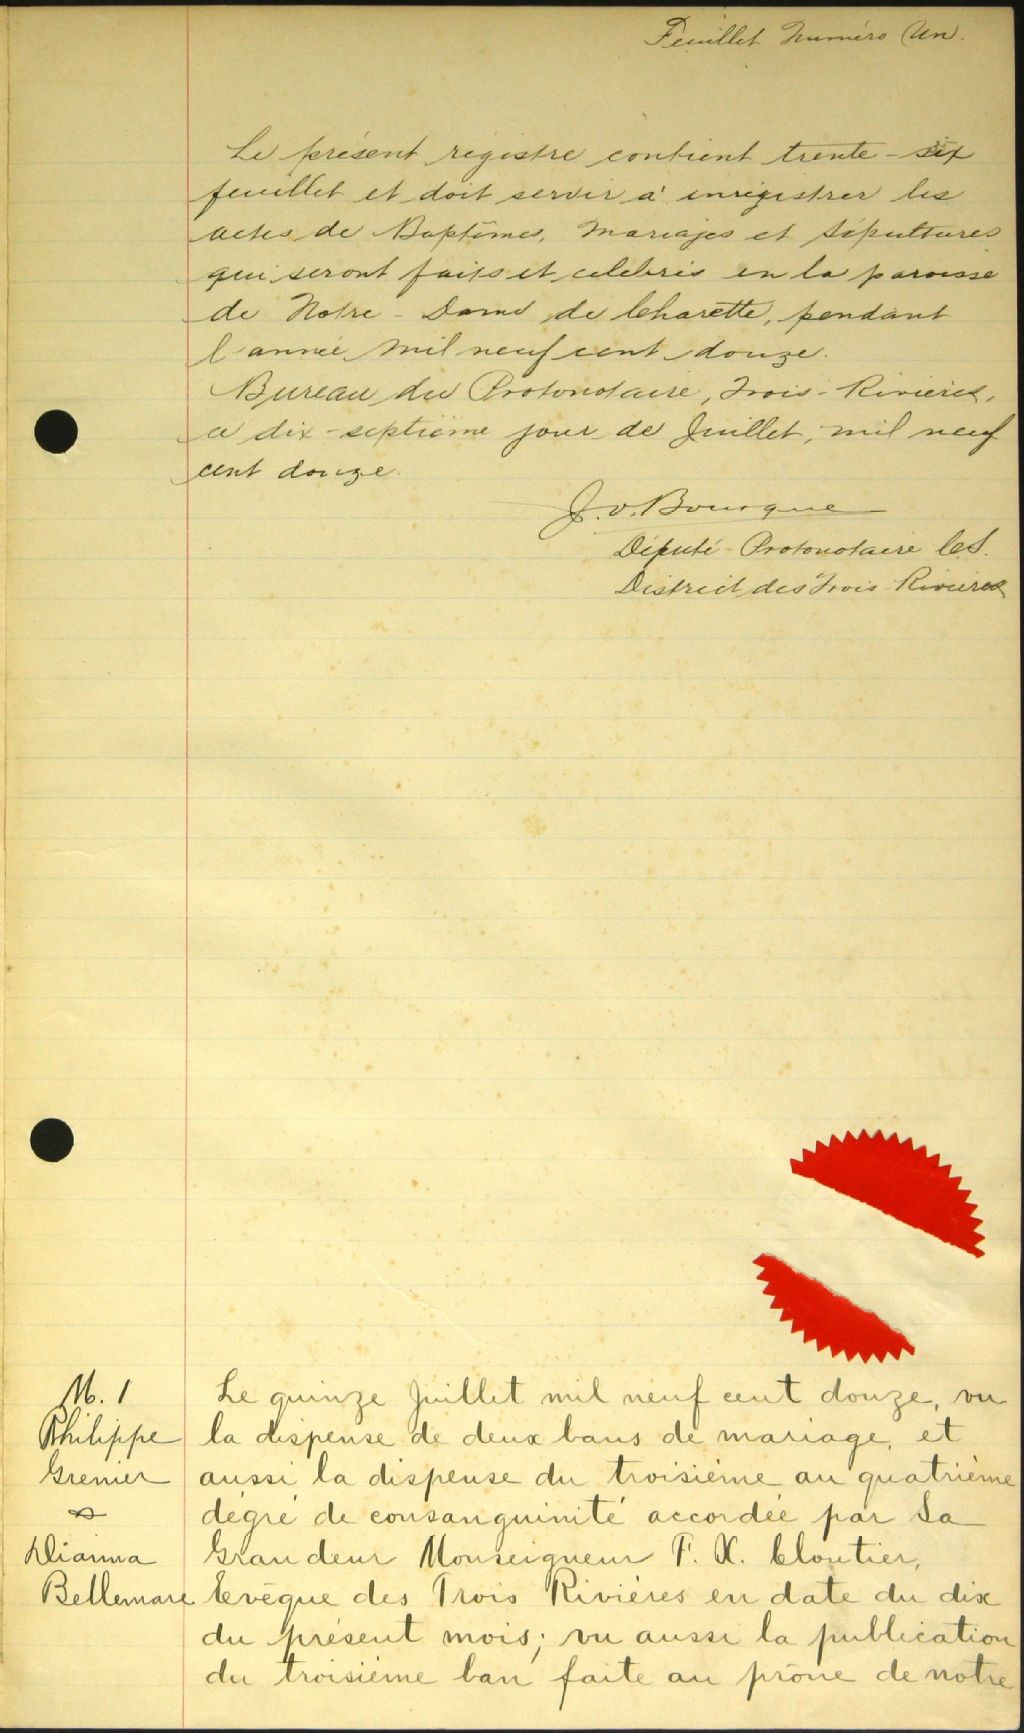 Feuillet Numéro Un.
Le présent régistre contient trente-six
feuillet et doit servir à enrégistrer les
actes de Baptêmes, Mariages et Sépultures
qui seront faits et célébrés en la paroisse
de Notre-Dame de Charette, pendant
l'année mil neuf cent douze.
Bureau du Protonotaire, Trois-Rivières,
ce dix-septième jour de Juillet, mil neuf
cent douze.
J. O. Bourque
Député Protonotaire C.S.
District des Trois-Rivières
M. 1
Philippe
Grenier
&
Dianna
Bellemare
Le quinze Juillet mil neuf cent douze, vu
la dispense de deux bans de mariage, et
aussi la dispense du troisième au quatrième
dégré de consanguinité accordée par Sa
Grandeur Monseigneur F. X. Cloutier,
Evêque des Trois Rivières en date du dix
du présent mois; vu aussi la publication
du troisième ban faite au prône de notre